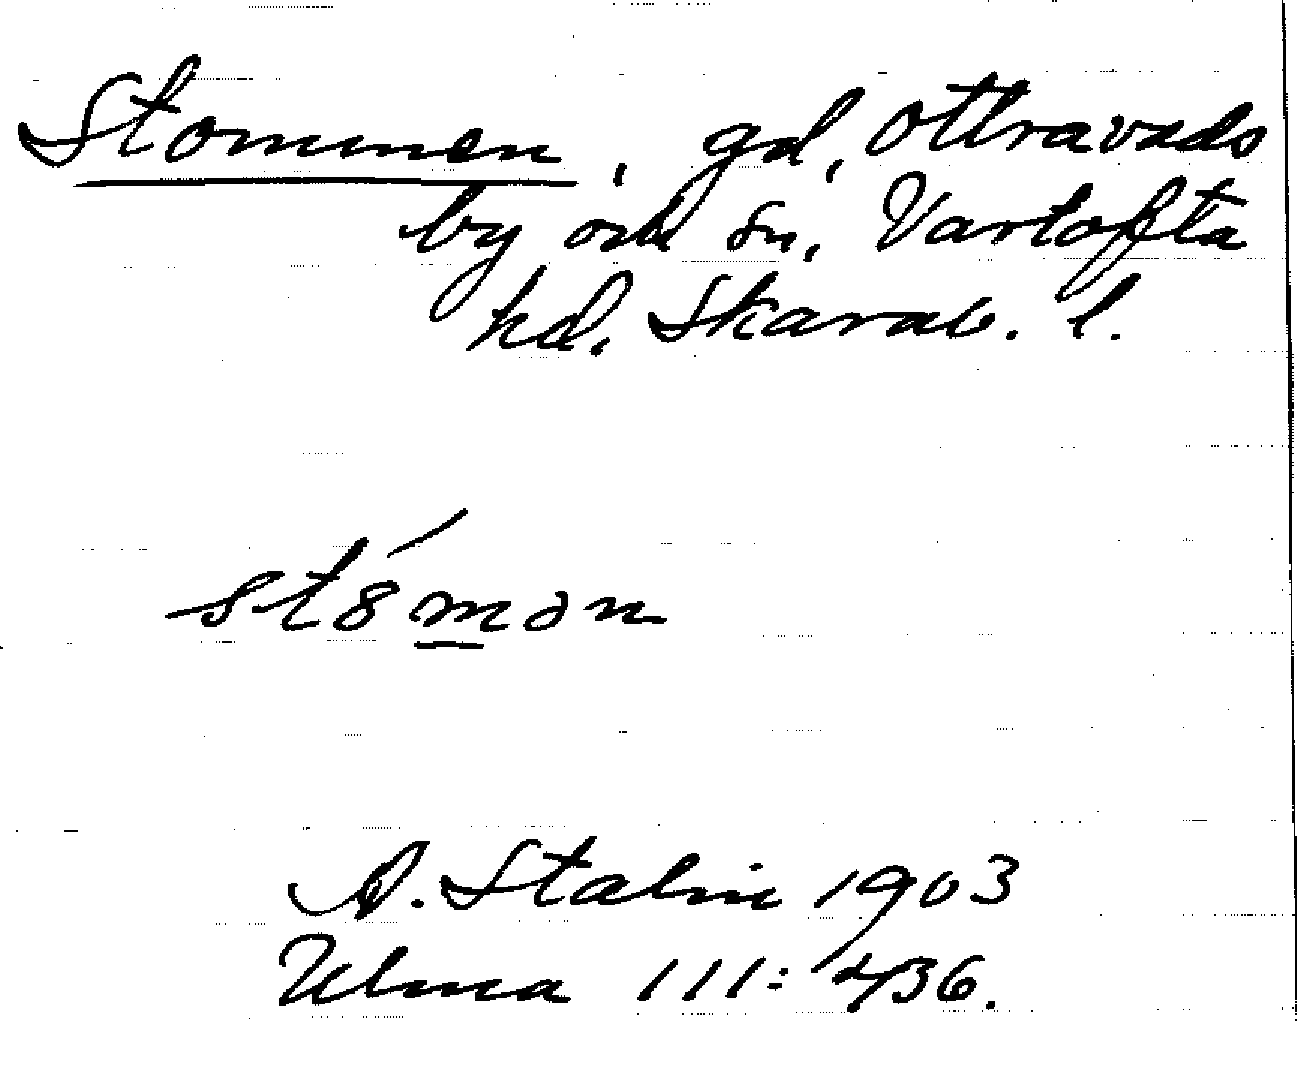 Stommen, gd, Ottravads
by och sn, Vartofta
hd. Skarab. l.
stȣ́mən
A. Stalin 1903
Ulma 111: 436.